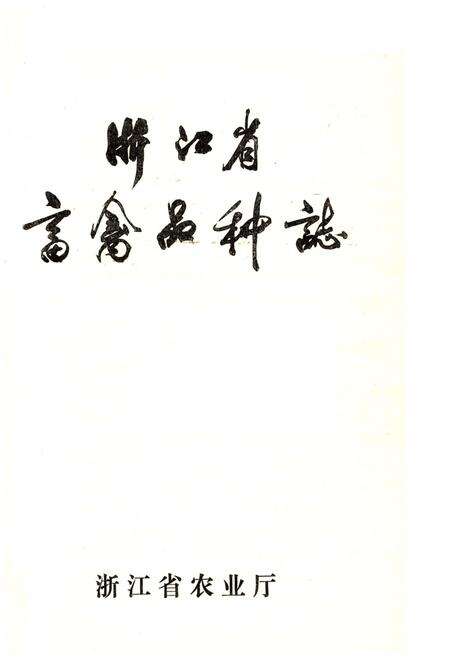 浙江省
畜禽品种誌
浙江省农业厅